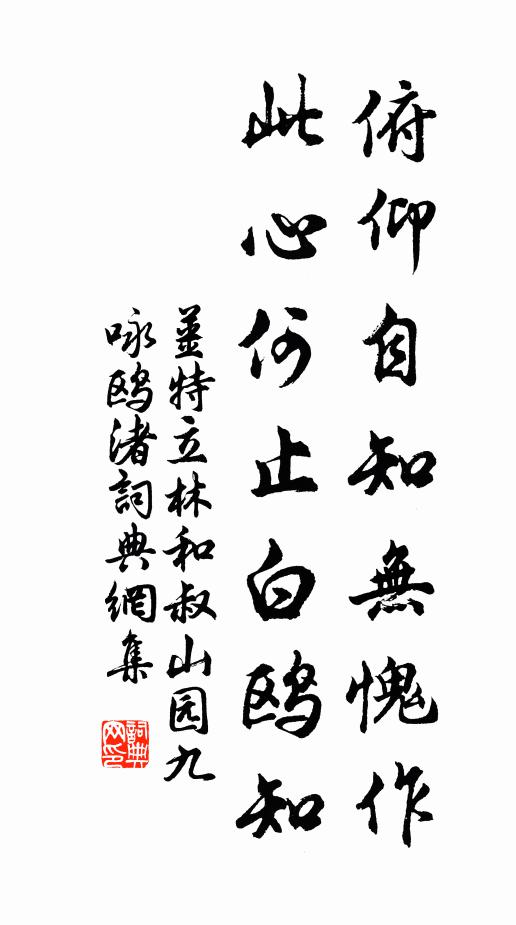 俯仰自知無愧作
此心何止白鸥知
姜特立林和叔山园九
咏鸥渚詞典網集
詞典網印